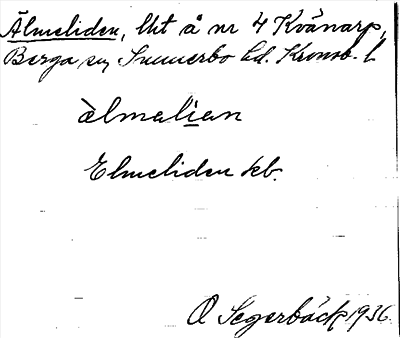 Älmeliden, lht å nr 4 Kvänarp,
Berga sn, Sunnerbo hd. Kronob. l.
àlmalian
Elmeliden kb.
O Segerbäck 1936.